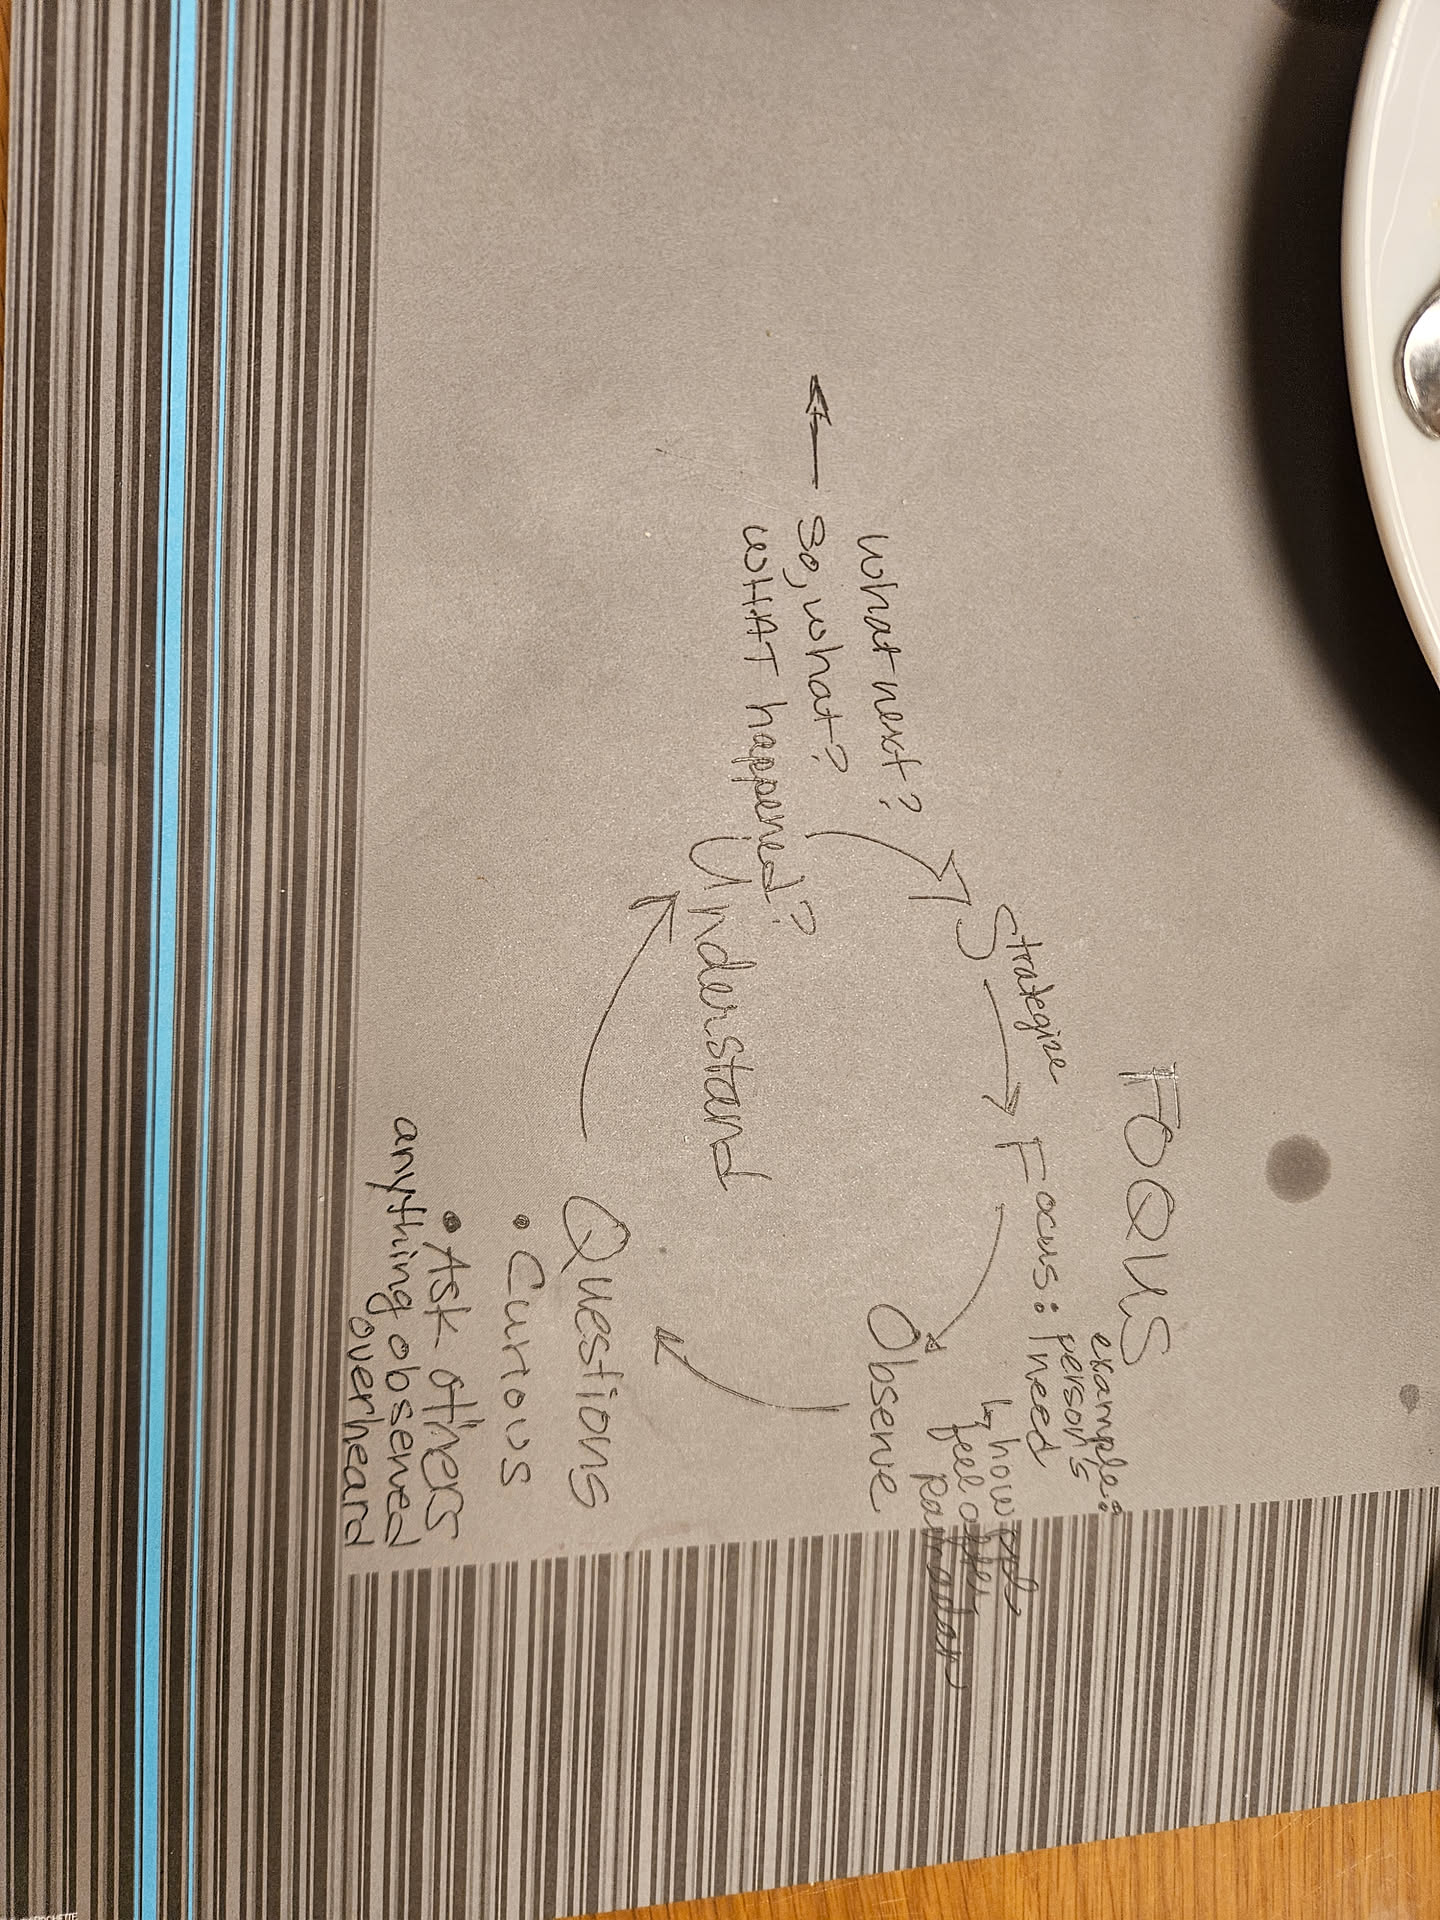 FOQUS
example:
person's
need
Focus:
↳ how ppl
feel after
Ramadan
Strategize
Observe
What next?
So, what?
WHAT happened?
Understand
Questions
• Curious
• Ask others
anything observed
overheard